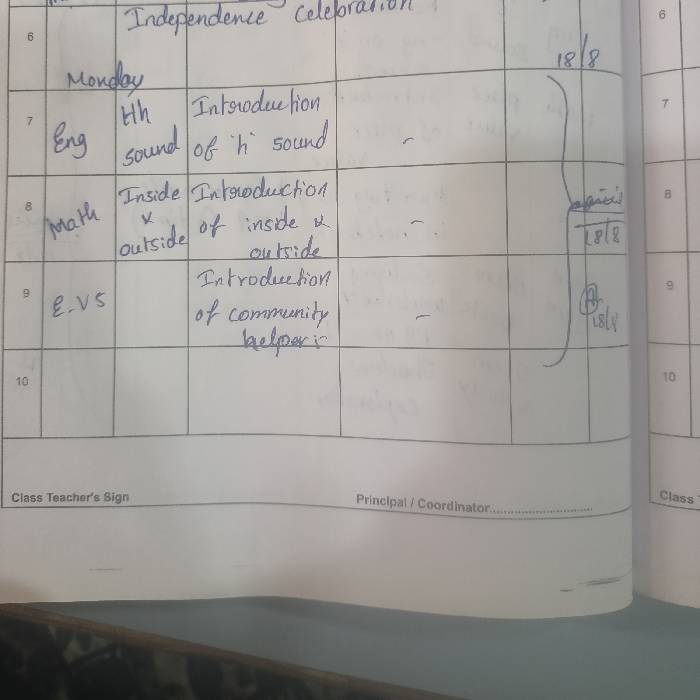 6 Independence Celebration 6
Monday 18/8
7 Eng Hh sound Introduction of 'h' sound - 7
8 Math Inside & outside Introduction of inside & outside - 18/8 8
9 E.VS Introduction of community helpers - 18/8 9
10 10
Class Teacher's Sign Principal / Coordinator........................ Class